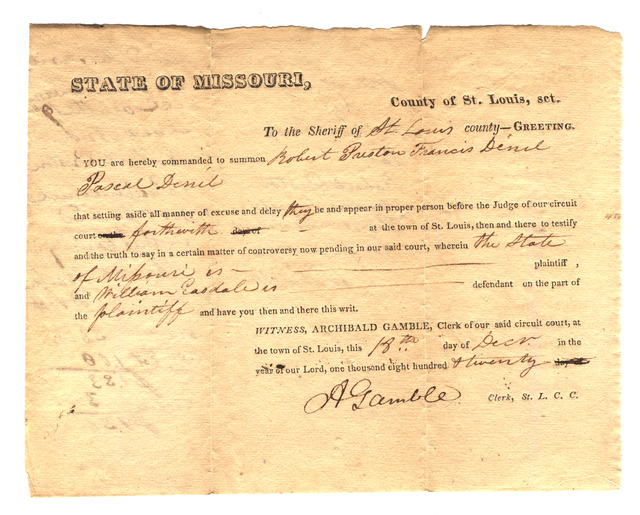 STATE OF MISSOURI,
County of St. Louis, sct.
To the Sheriff of St. Louis county—GREETING.
YOU are hereby commanded to summon Robert Preston Francis Dénil
Pascal Dénil
that setting aside all manner of excuse and delay they be and appear in proper person before the Judge of our circuit
court on the forthwith day of at the town of St. Louis, then and there to testify
and the truth to say in a certain matter of controversy now pending in our said court, wherein the State
of Missouri is plaintiff,
and William Easdale is defendant on the part of
the plaintiff and have you then and there this writ.
WITNESS, ARCHIBALD GAMBLE, Clerk of our said circuit court, at
the town of St. Louis, this 18th day of Decr in the
year of our Lord, one thousand eight hundred & twenty
AGamble Clerk, St. L. C. C.